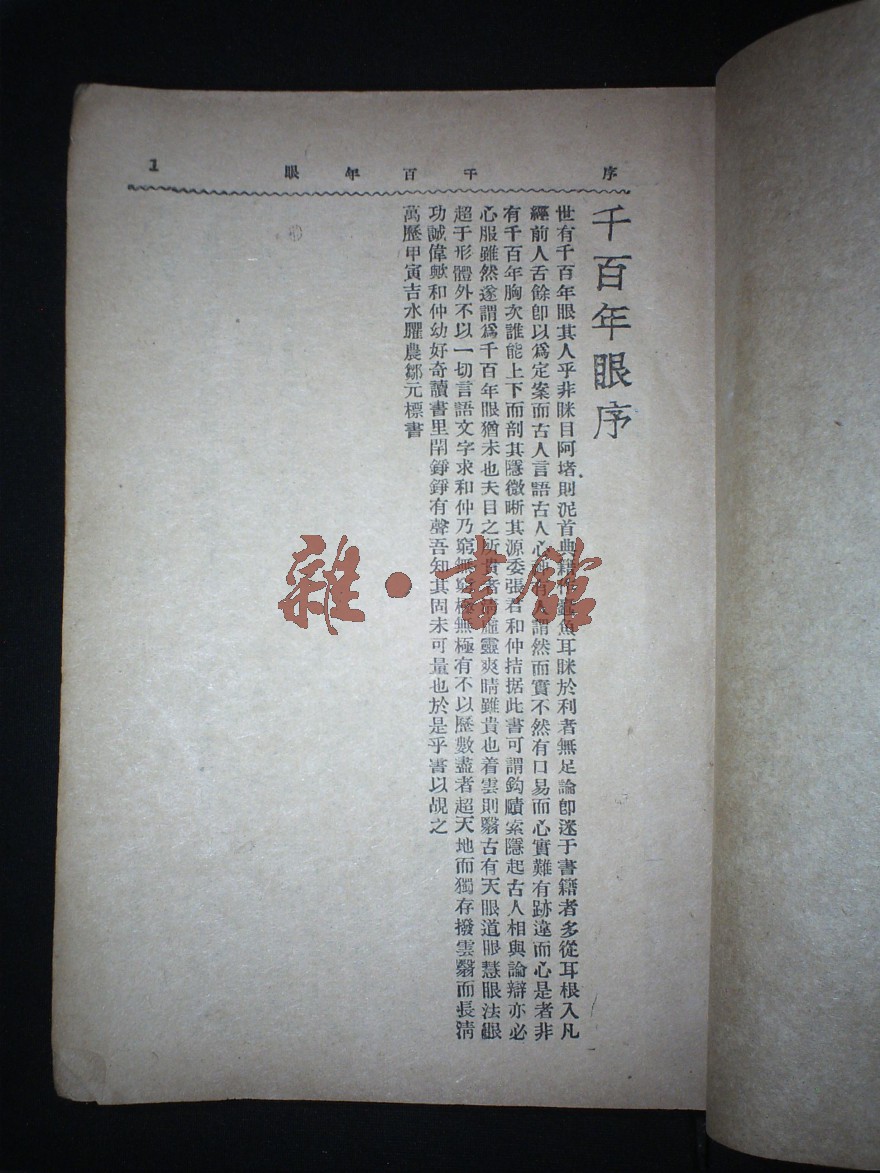 序 千百年眼 1
千百年眼序
世有千百年眼其人乎非眯目阿堵則泥首典籍作蠹魚耳眯於利者無足論卽迷于書籍者多從耳根入凡
經前人舌餘卽以爲定案而古人言語古人心有人謂然而實不然有口易而心實難有跡違而心是者非
有千百年胸次誰能上下而剖其隱微晰其源委張君和仲拮据此書可謂鈎賾索隱起古人相與論辯亦必
心服雖然遂謂爲千百年眼猶未也夫目之所貴者淸虛靈爽睛雖貴也着雲則翳古有天眼道眼慧眼法眼
超于形體外不以一切言語文字求和仲乃窮無窮極無極有不以歷數盡者超天地而獨存撥雲翳而長淸
功誠偉歟和仲幼好奇讀書里閈錚錚有聲吾知其固未可量也於是乎書以覘之
萬歷甲寅吉水臞農鄒元標書
雜·書館